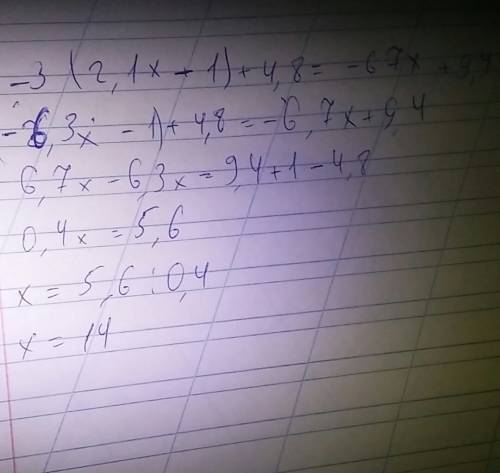 -3 (2,1x - 1) + 4,8 = -6,7x + 9,4
-6,3x - 1) + 4,8 = -6,7x + 9,4
6,7x - 6,3x = 9,4 + 1 - 4,8
0,4x = 5,6
x = 5,6 : 0,4
x = 14